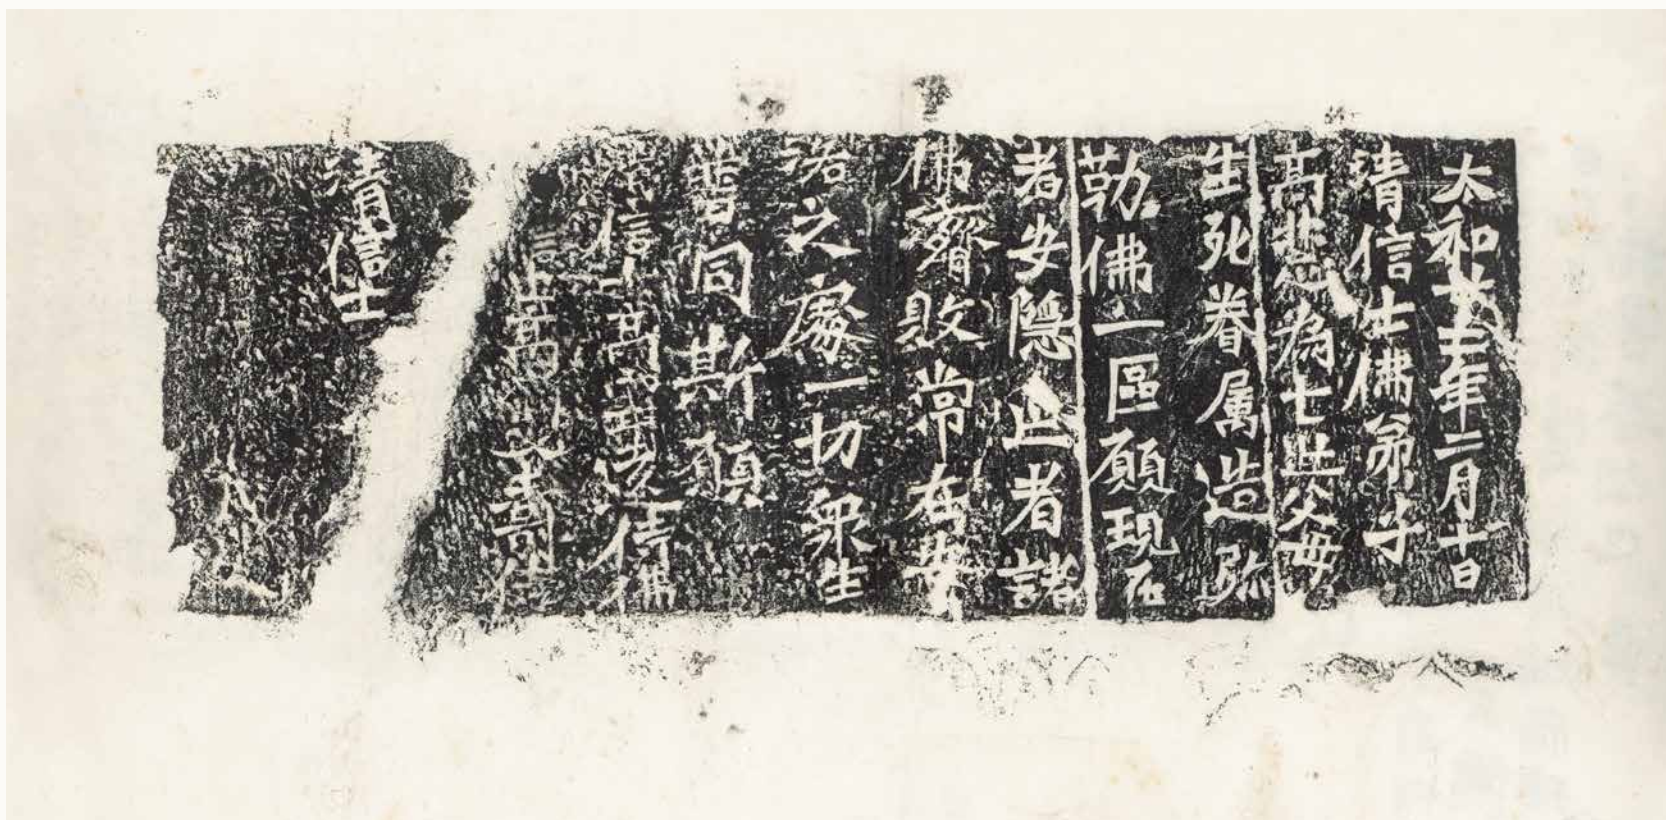 太和廿二年二月十日
清信士佛弟子
高慧為七世父母
生死眷属造弥
勒佛一區願現在
者安隱亡者諸
佛齊敗常在安
洛之處一切衆生
普同斯願
清信士高 侍佛
清信士